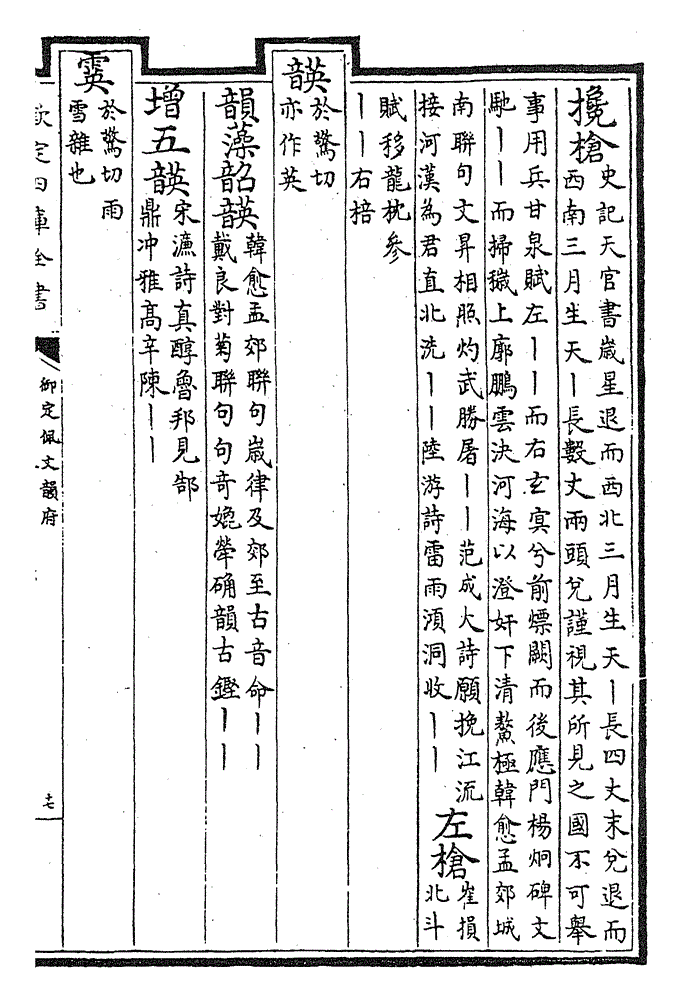 攙槍史記天官書歲星退而西北三月生天丨長四丈末兌退而
西南三月生天丨長數丈兩頭兌謹視其所見之國不可舉
事用兵甘泉賦左丨丨而右玄冥兮前熛闕而後應門楊炯碑文
馳丨丨而掃穢上廓鵬雲決河海以澄奸下清鰲極韓愈孟郊城
南聯句文昇相照灼武勝屠丨丨范成大詩願挽江流
接河漢為君直北洗丨丨陸游詩雷雨澒洞收丨丨
左槍崔損
北斗
賦移龍枕參
丨丨右掊
韺於驚切
亦作英
韻藻韶韺韓愈孟郊聯句歲律及郊至古音命丨丨
戴良對菊聯句句奇媲犖确韻古鏗丨丨
增五韺宋濂詩真醇魯邦見郜
鼎冲雅高辛陳丨丨
霙於驚切雨
雪雜也
欽定四庫全書
御定佩文韻府
十七